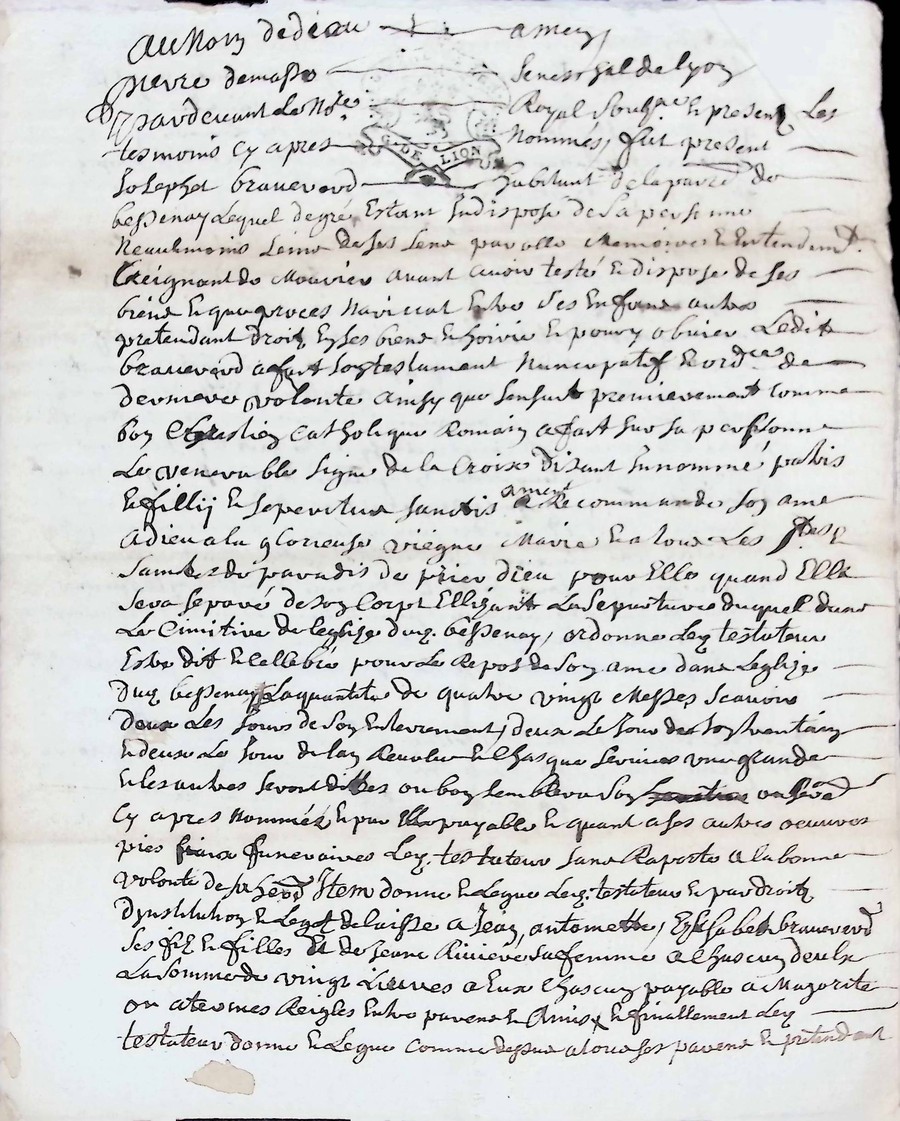 Au Nom de dieu amen
pierre demasso Seneschal de lyon
pardevant le No.re Royal soub.ne et present les
tesmoins cy apres Nommés, fut present
G. DE LION
Josephet braeverd habitant de la parre de
bessenay lequel de gré Estant Indispose de sa personne
Neaulmoins seine de ses sens parolle Memoires et Entendemt.
Creignant de Mourier avant avoir testé et dispose de ses
biens et que proces Naviccat Entre ses Enfans autres
pretendant droit En ses biens et hoirie et pour y obvier Ledit
braeverd a fait son testament Nuncupatif Et ord.ces de
derniere volonte ainsy que sensuit premierement comme
bon Chrestien Catholique Romain a fait sur sa personne
Le venerable signe de la Croise disant In nomme patris
Et fillij Et speritus sanctis ament a Recommande son ame
a dieu a la glorieuse viegne Marie Et a tous Les
saincts de paradis de prier dieu pour Elle quand Elle
sera separé de son Corps Ellizant La sepulturre duquel dans
Le Cimitire de leglize dud. bessenay, ordonne Led. testateur
Estre dit Et cellebré pour Le Repos de son ame dans Leglize
dud. bessenay La quantite de quatre vingt Messes scavoir
deux Les Jours de son Enterrement, deux Le Jour de son
Et deux Le Jour de lan Revolu Et Chasque services une grande
Et les autres seront dittes ou bon semblera son
Cy apres Nommés Et par payable Et quant a ses autres oeuvres
pies fraix funeraires Led. testateur sans Raporte a la bonne
volonte de sa herd. Item donne Et Legue Led. testateur Et par droit
dInstitution Et Legat delaisse a Jean, antomette, Elisabet braeverd
ses fils Et filles Et de Jeane Riviere, sa femme a Chascun deulx
La somme de vingt Lievres a Eux Chascun payable a Magorite
ou a termes Reigles Entre parens Et Amis Et finallement Led.
testateur donne Et Legue Comme dessus a tous ses parens Et pretendant